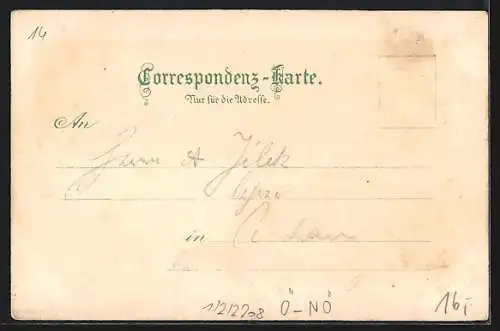 14
Correspondenz-Karte.
Nur für die Adresse.
An
Herrn A Jilek
in
1/2/2708 Ö-NÖ 16,-